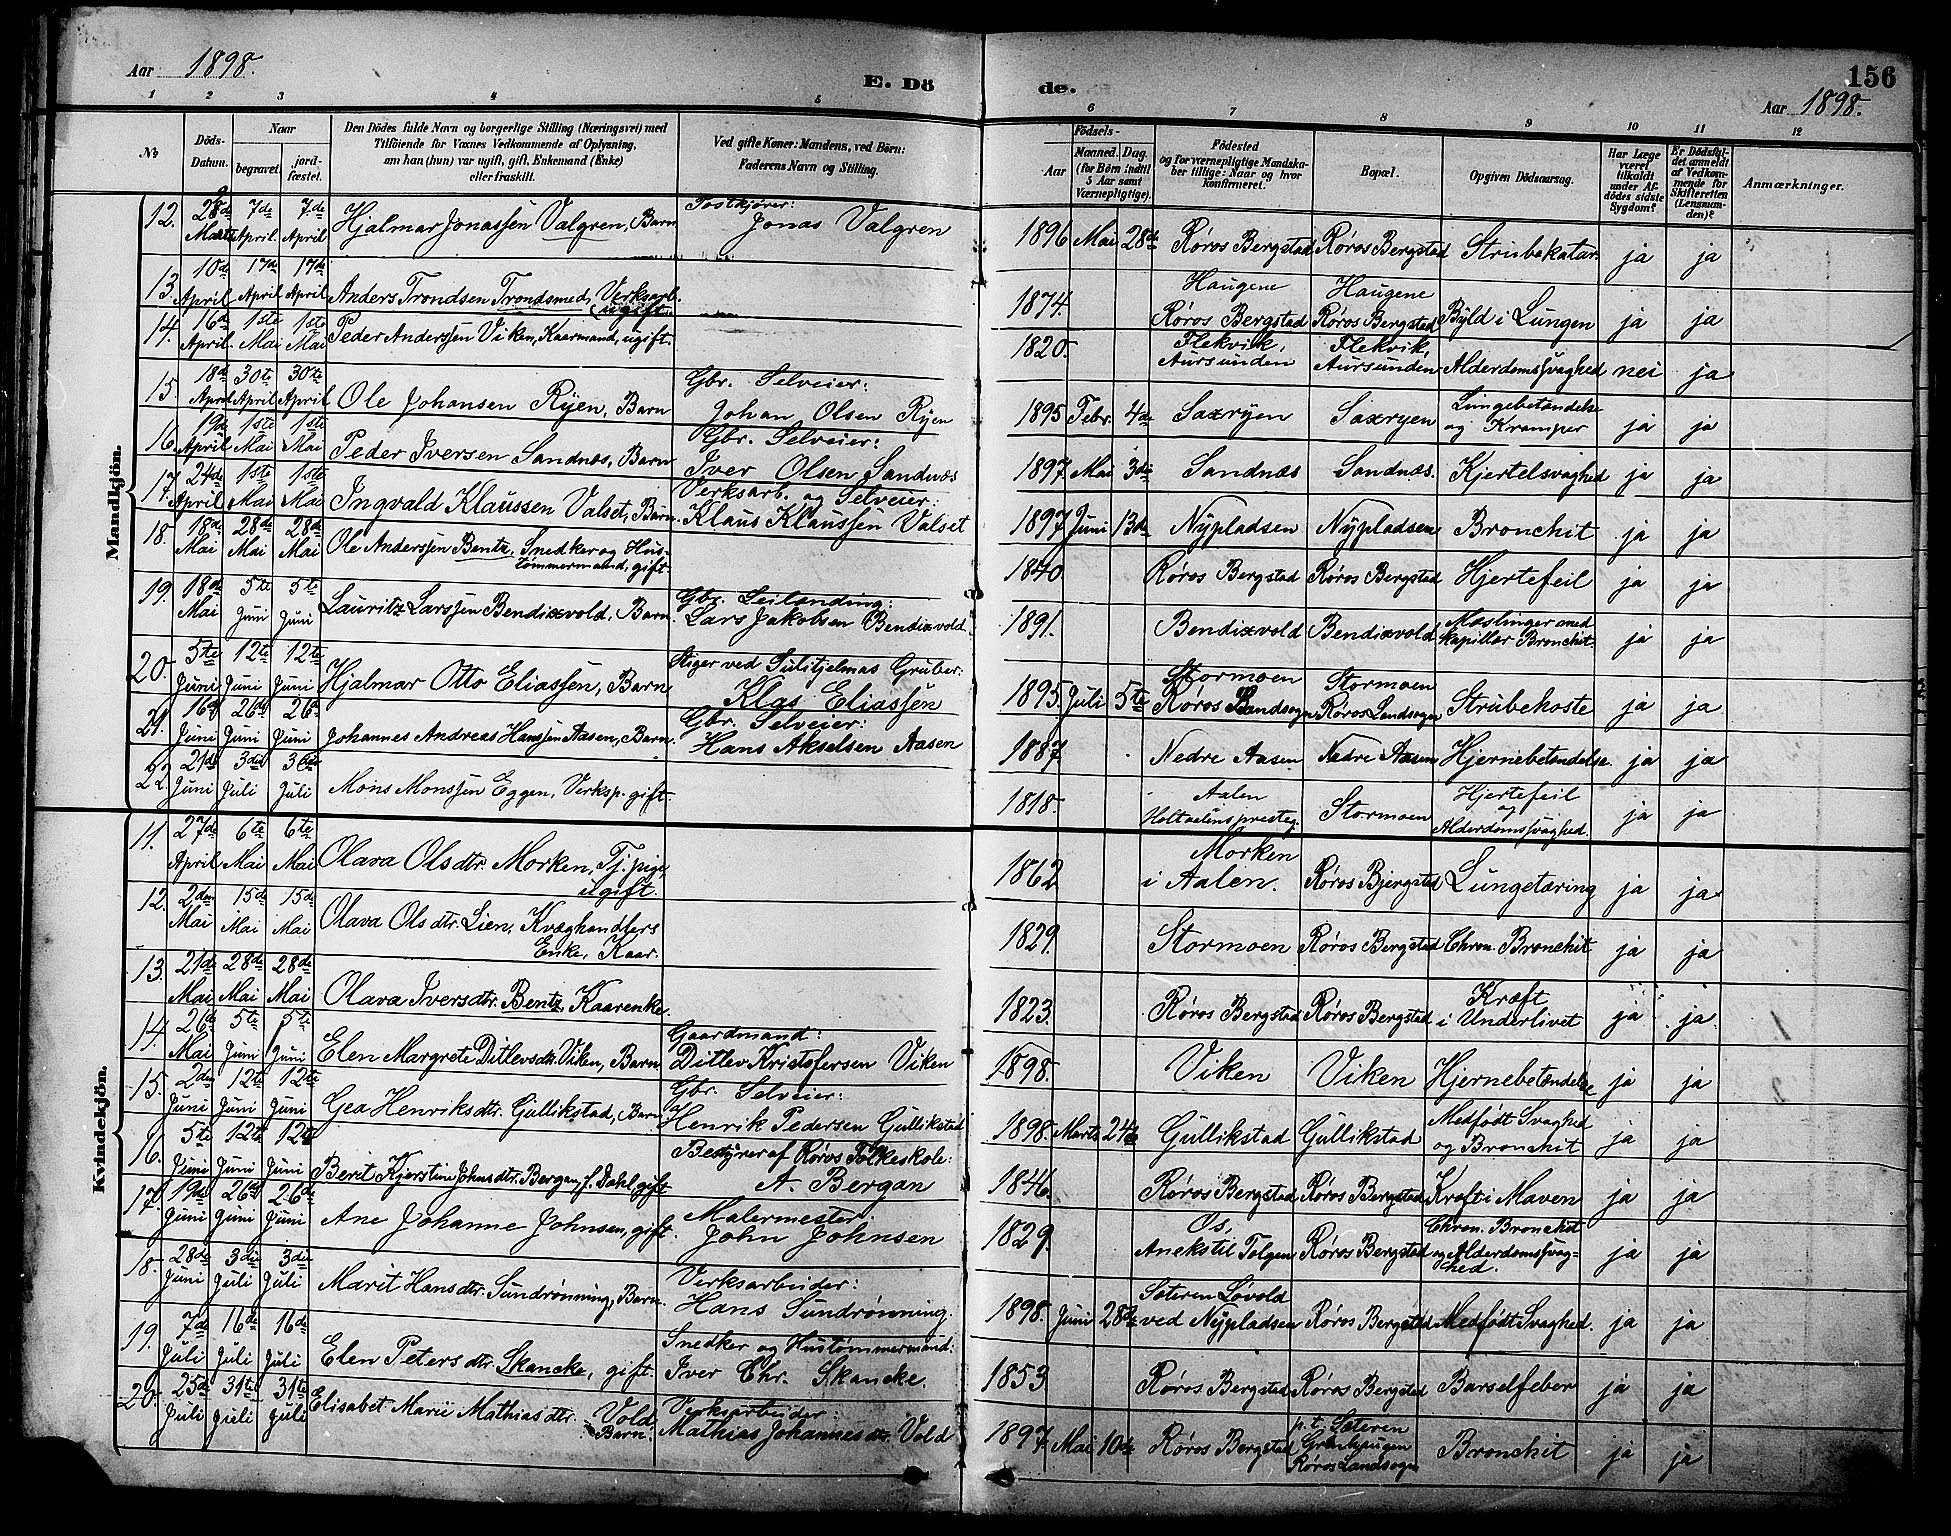 Aar 1898.
E. Dö
de.
156
Aar 1898.
1 2 3 4 5 6 7 8 9 10 11 12
No
Döds-Datum.
Naar
begravet.
jordfæstet.
Den Dödes fulde Navn og borgerlige Stilling (Næringsvei) med
Tilföiende for Vaxnes Vedkommende af Oplysning,
om han (hun) var ugift, gift, Enkemand (Enke)
eller fraskilt.
Ved gifte Koner: Mandens, ved Börn:
Faderens Navn og Stilling.
Födsels-
Aar
Maaned. Dag.
(for Börn indtil
5 Aar samt
Værnepligtige).
Födested
og for værnepligtige Mandska-
ber tillige: Naar og hvor
konfirmeret.
Bopæl.
Opgiven Dödsaarsag.
Har Læge
været
tilkaldt
under Af-
dödes sidste
Sygdom?
Er Dödsfal-
det anmeldt
af Vedkom-
mende for
Skifteretten
(Lensman-
den)?
Anmærkninger.
Mandkjön.
12. 28de Marts 7de April 7de April Hjalmar Jonassen Valgren, Barn Postkjører: Jonas Valgren 1896 Mai 28de Røros Bergstad Røros Bergstad Strubekatar ja ja
13. 10de April 17de April 17de April Anders Trondsen Trondsmed, Verksarb. ugift. 1874. Haugene Røros Bergstad Haugene Røros Bergstad Byld i Lungen ja ja
14. 16de April 1ste Mai 1ste Mai Peder Anderssen Viken, Kaarmand, ugift. 1820. Flekvik, Aursunden Flekvik, Aursunden Alderdomssvaghed nei ja
15. 18de April 30te April 30te April Ole Johansen Ryen, Barn Gbr. Selveier: Johan Olsen Ryen 1895 Febr. 4de Saxryen Saxryen Lungebetændelse og Kramper ja ja
16. 19de April 1ste Mai 1ste Mai Peder Iversen Sandnæs, Barn Gbr. Selveier: Iver Olsen Sandnæs 1897 Mai 3die Sandnæs Sandnæs. Kjertelsvaghed ja ja
17. 24de April 1ste Mai 1ste Mai Ingvald Klaussen Valset, Barn Verksarb. og Selveier: Klaus Klaussen Valset 1897 Juni 13de Nypladsen Nypladsen Bronchit ja ja
18. 18de Mai 28de Mai 28de Mai Ole Anderssen Bentz, Snedker og Hustømmermand, gift. 1840 Røros Bergstad Røros Bergstad Hjertefeil ja ja
19. 18de Mai 5te Juni 5te Juni Lauritz Larssen Bendixvold, Barn. Gbr. Leilænding: Lars Jakobsen Bendixvold 1891. Bendixvold Bendixvold Mæslinger med kapillær Bronchit. ja ja
20. 5te Juni 12te Juni 12te Juni Hjalmar Otto Eliassen, Barn Stiger ved Sulitjelmas Gruber: Klas Eliassen 1895. Juli 5te Stormoen Røros Landsogn Stormoen Røros Landsogn Strubehoste ja ja
21. 16de Juni 26de Juni 26de Juni Johannes Andreas Hanssen Aasen, Barn. Gbr. Selveier: Hans Akselsen Aasen 1887 Nedre Aasen Nedre Aasen Hjernebetændelse ja ja
22. 21de Juni 3die Juli 3die Juli Mons Monssen Eggen, Verksp. gift. 1818. Aalen Holtaalens presteg. Stormoen Hjertefeil og Alderdomssvaghed. ja ja
Kvindekjön.
11. 27de April 6te Mai 6te Mai Olava Olsdtr. Morken, Tj.pige, ugift. 1862 Morken i Aalen. Røros Bjergstad Lungetæring ja ja
12. 2den Mai 15de Mai 15de Mai Olava Olsdtr. Lien, Kvæghandlers Enke, Kaar. 1829. Stormoen Røros Bergstad Chron. Bronchit ja ja
13. 21de Mai 28de Mai 28de Mai Olava Iversdtr. Bentz, Kaarenke. 1823. Røros Bergstad Røros Bergstad Kræft i Underlivet ja ja
14. 26de Mai 5te Juni 5te Juni Elen Margrete Ditlevsdtr. Viken, Barn Gaardmand: Ditlev Kristofersen Viken 1898. Viken Viken Hjernebetændelse ja ja
15. 2den Juni 12te Juni 12te Juni Gea Henriksdtr. Gullikstad, Barn Gbr. Selveier: Henrik Pedersen Gullikstad 1898. Marts 24de Gullikstad Gullikstad Medfødt Svaghed og Bronchit ja ja
16. 5te Juni 12te Juni 12te Juni Berit Kjerstine Johnsdtr. Bergan, f. Dahl, gift Bestyrer af Røros Folkeskole: A. Bergan 1846. Røros Bergstad Røros Bergstad Kræft i Maven ja ja
17. 19de Juni 26de Juni 26de Juni Ane Johanne Johnsen, gift. Malermester: John Johnsen 1829. Os, Anekstil Tolgen Røros Bergstad Chron. Bronchit og Alderdomssvaghed. ja ja
18. 28de Juni 3die Juli 3die Juli Marit Hansdtr. Sundrønning, Barn. Verksarbeider: Hans Sundrønning. 1898. Juni 28de Sæteren Løvold ved Nypladsen Røros Bergstad Medfødt Svaghed. ja ja
19. 7de Juli 16de Juli 16de Juli Elen Petersdtr. Skancke, gift. Snedker og Hustømmermand: Iver Chr. Skancke. 1853 Røros Bergstad Røros Bergstad Barselfeber ja ja
20. 25de Juli 31te Juli 31te Juli Elisabet Marie Mathiasdtr. Vold Barn. Verksarbeider: Mathias Johannes Vold 1897. Mai 10de Røros Bergstad p.t. Sæteren Røros Landsogn Bronchit ja ja